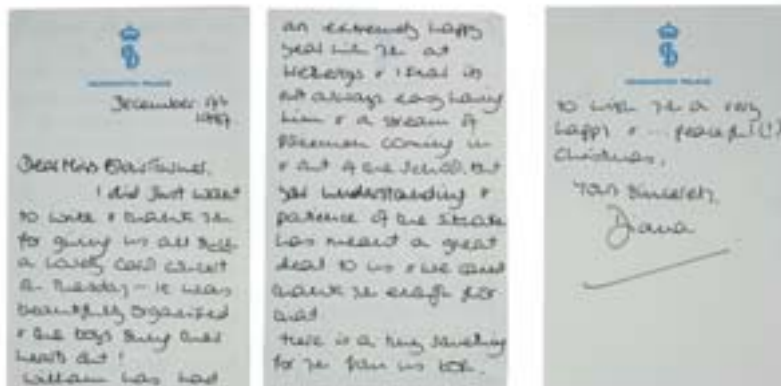 KENSINGTON PALACE
December
1987
Dear Miss
I did just want
to write & thank you
for giving us all such
a lovely carol concert
on Tuesday – it was
beautifully organised
& the boys sung their
hearts out!
William has had
an extremely happy
year with you at
Wetherbys & I know its
not always easy having
him & a stream of
policemen coming in
& out of the school, but
your understanding &
patience of the situation
has meant a great
deal to us & we cannot
thank you enough for
that
there is a tiny something
for you from us both.
KENSINGTON PALACE
to wish you a very
happy & ... peaceful(!)
Christmas,
Yours sincerely,
Diana